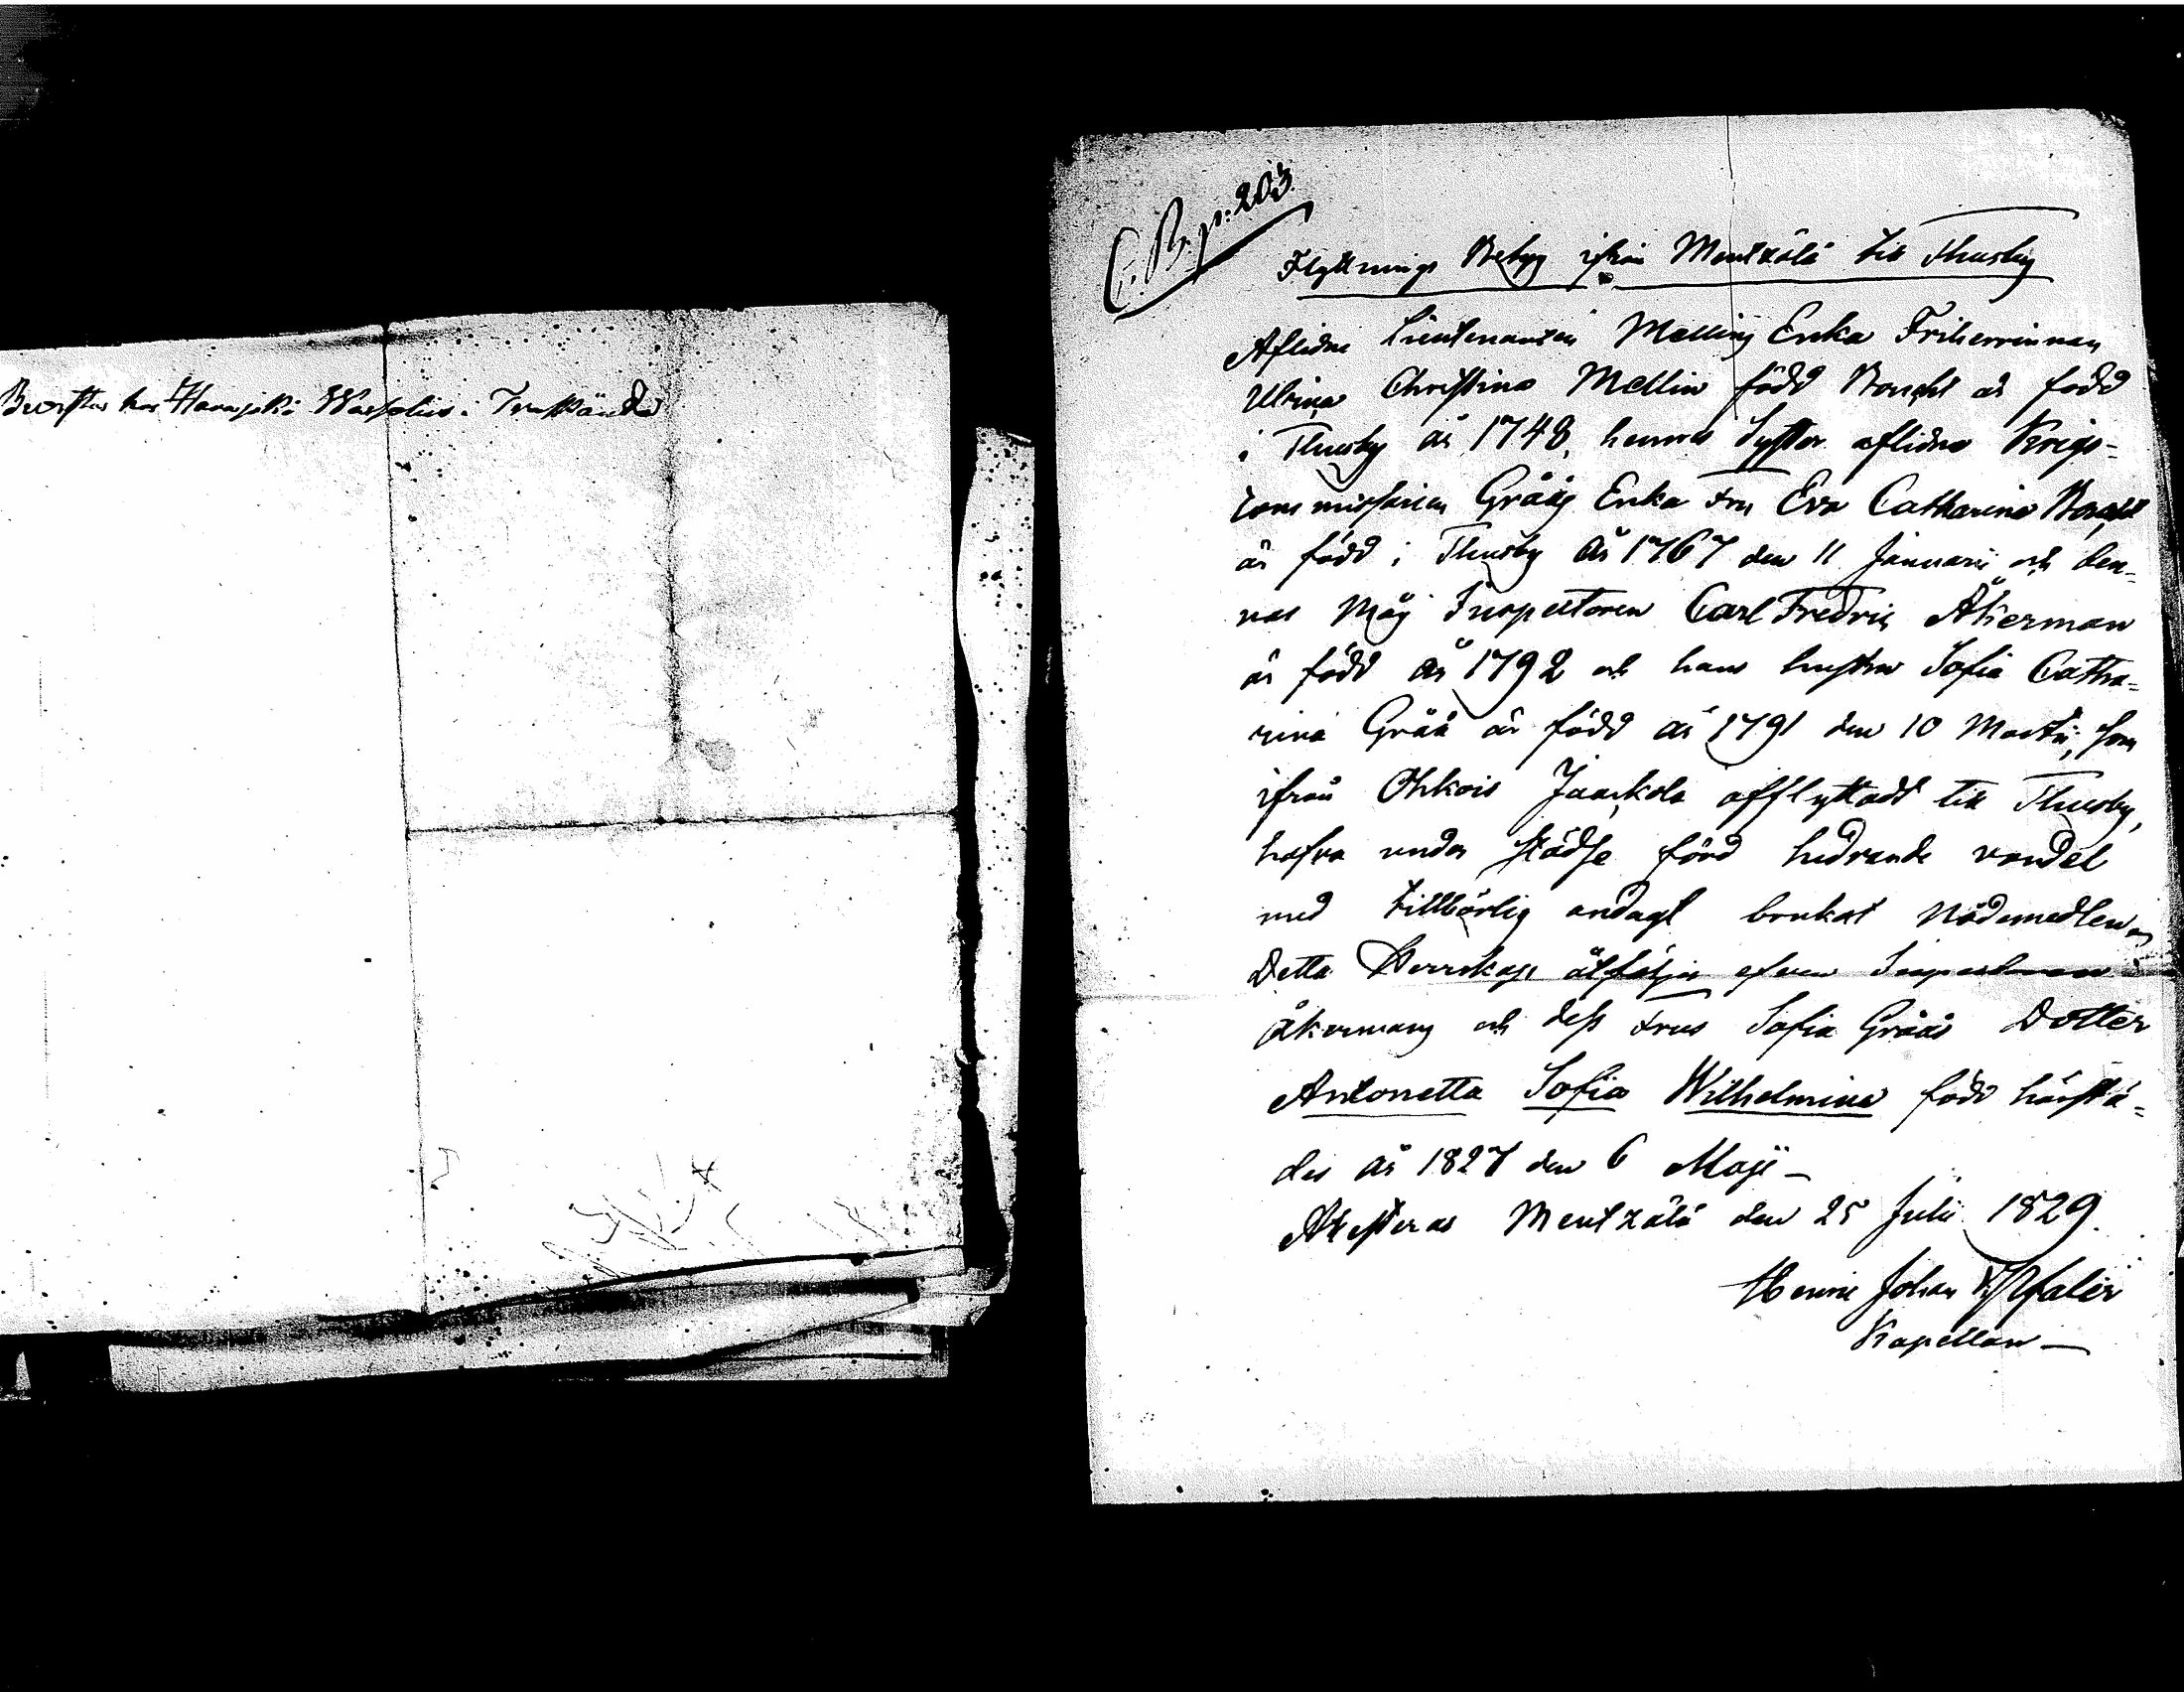 Bor hos Haarajoki i Träskända
C. B. p: 203.
Flyttnings Betyg ifrån Mentzälä till Thusby
Aflidne Lieutenanten Mellins Enka Friherrinnan
Ulrica Christina Mellin född är född
i Thusby år 1748, hennes Syster aflidne Krigs-
commissarien Gråås Enka Fru Eva Catharina
är född i Thusby år 1767 den 11 Januarii och den-
nas Måg Inspectoren Carl Fredric Åkerman
är född år 1792 och hans hustru Sofia Catha-
rina Gråå är född år 1791 den 10 Martii, som
ifrån Ohkois Jaackola afflyttadt till Thusby,
hafva under städse förd hedrande vandel
med tillbörlig andagt brukat Nådemedlen,
Detta Herrskap åtföljer äfven Inspectoren
Åkermans och dess Frus Sofia Gråås Dotter
Antonetta Sofia Wilhelmina född härstä-
des år 1827 den 6 Maji –
Attesteras Mentzälä den 25 Julii 1829.
Henric Johan Pfaler
Kapellan –